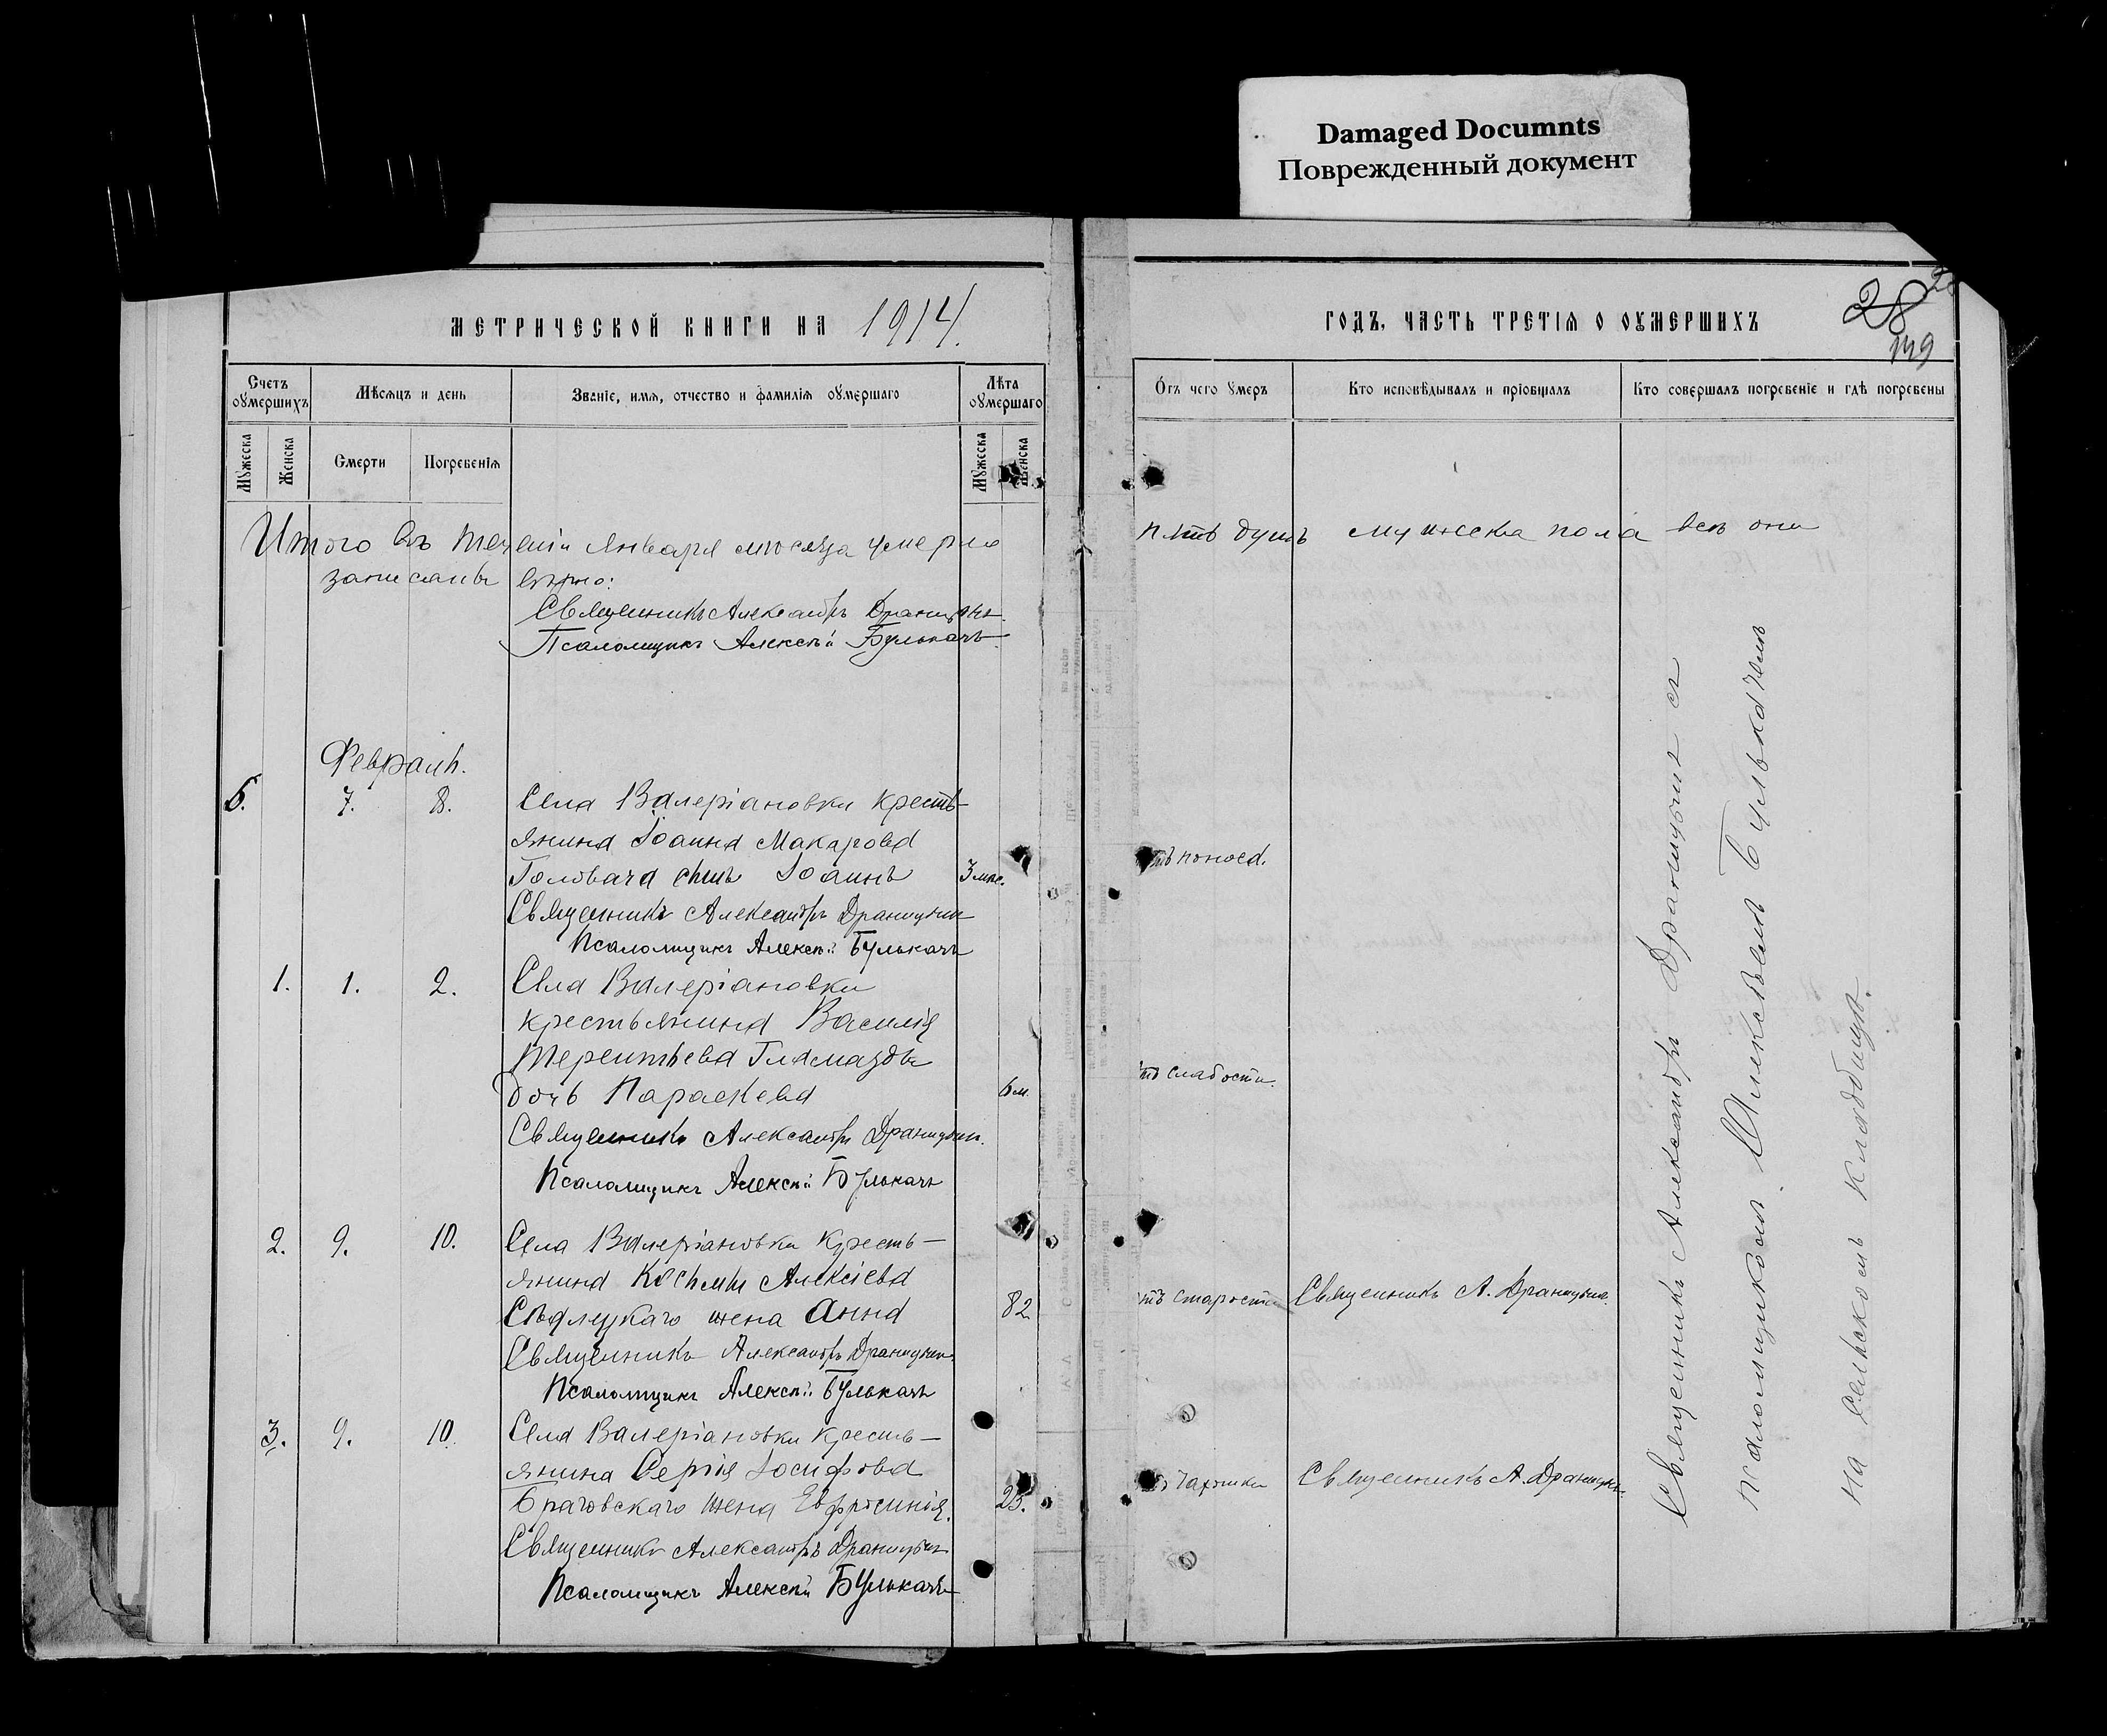 Damaged Documnts
Поврежденный документ
МЕТРИЧЕСКОЙ КНИГИ НА 1914
Счетъ оумершихъ
Мѣсяцъ и день
Званіе, имя, отчество и фамилія оумершаго
Лѣта оумершаго
Мужеска
Женска
Смерти
Погребенія
Мужеска
Женска
Итого въ теченіи января мѣсяца умерло
записаны вѣрно:
Священникъ Александръ
Псаломщикъ Алексѣй Булькачъ
Февраль.
6. 7. 8. Села Валеріановки кресть-
янина Іоанна Макарова
Головача сынъ Іоаннъ 3 мѣс.
Священникъ Александръ
Псаломщикъ Алексѣй Булькачъ
1. 1. 2. Села Валеріановки
крестьянина Василія
Терентьева Гламазды
дочь Параскева 6 м.
Священникъ Александръ
Псаломщикъ Алексѣй Булькачъ
2. 9. 10. Села Валеріановки кресть-
янина Космы Алексіева
жена Анна 82
Священникъ Александръ
Псаломщикъ Алексѣй Булькачъ
3. 9. 10. Села Валеріановки кресть-
янина Сергія Іосифова
жена Евфросинія. 25.
Священникъ Александръ
Псаломщикъ Алексѣй Булькачъ
ГОДЪ, ЧАСТЬ ТРЕТІЯ О ОУМЕРШИХЪ
28
149
Отъ чего умеръ
Кто исповѣдывалъ и пріобщалъ
Кто совершалъ погребеніе и гдѣ погребены
пять душъ мужеска пола всѣ они
отъ поноса.
отъ слабости.
отъ старости Священникъ А.
чахотки Священникъ А.
Священникъ Александръ съ
псаломщикомъ Алексѣемъ Булькачемъ
на сельскомъ кладбищѣ.